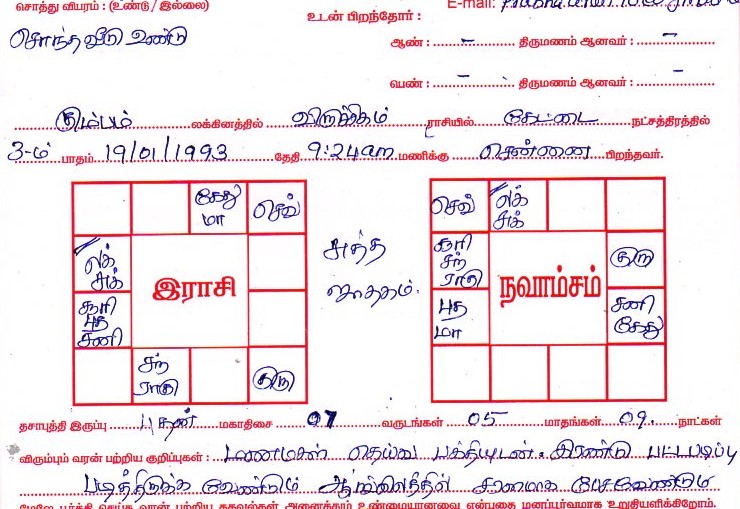 சொத்து விபரம் : (உண்டு / இல்லை)
E-mail:
உடன் பிறந்தோர் :
சொந்த வீடு உண்டு
ஆண் : – திருமணம் ஆனவர் : –
பெண் : – திருமணம் ஆனவர் : –
கும்பம் லக்கினத்தில் விருச்சிகம் ராசியில் கேட்டை நட்சத்திரத்தில்
3-ம் பாதம் 19/01/1993 தேதி 9:24am மணிக்கு சென்னை பிறந்தவர்.
கேது
மா
செவ்
லக்
சுக்
சூரி
புத
சனி
சந்
ராகு
குரு
இராசி
சுத்த
ஜாதகம்.
செவ்
லக்
சுக்
சூரி
சந்
ராகு
குரு
புத
மா
சனி
கேது
நவாம்சம்
தசாபுத்தி இருப்பு புதன் மகாதிசை 07 வருடங்கள் 05 மாதங்கள் 09 நாட்கள்
விரும்பும் வரன் பற்றிய குறிப்புகள் : மணமகள் தெய்வ பக்தியுடன். இரண்டு பட்டபடிப்பு
படித்திருக்க வேண்டும் ஆங்கிலத்தில் சரளமாக பேசவேண்டும்
மேலே பூர்த்தி செய்த வரன் பற்றிய தகவல்கள் அனைத்தும் உண்மையானவை என்பதை மனப்பூர்வமாக உறுதியளிக்கிறோம்.